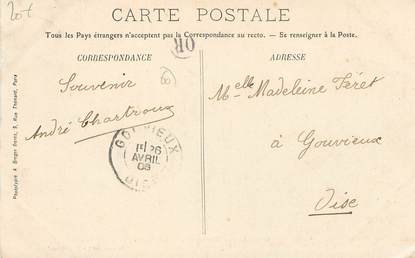 20t
CARTE POSTALE
Tous les Pays étrangers n'acceptent pas la Correspondance au recto. — Se renseigner à la Poste.
OR
CORRESPONDANCE
ADRESSE
Souvenir
André Chartroux
Melle Madeleine Féret
à Gouvieux
Oise
GOUVIEUX
26
AVRIL
06
OISE
Phototypie A. Breger frères, 9, Rue Thénard, Paris